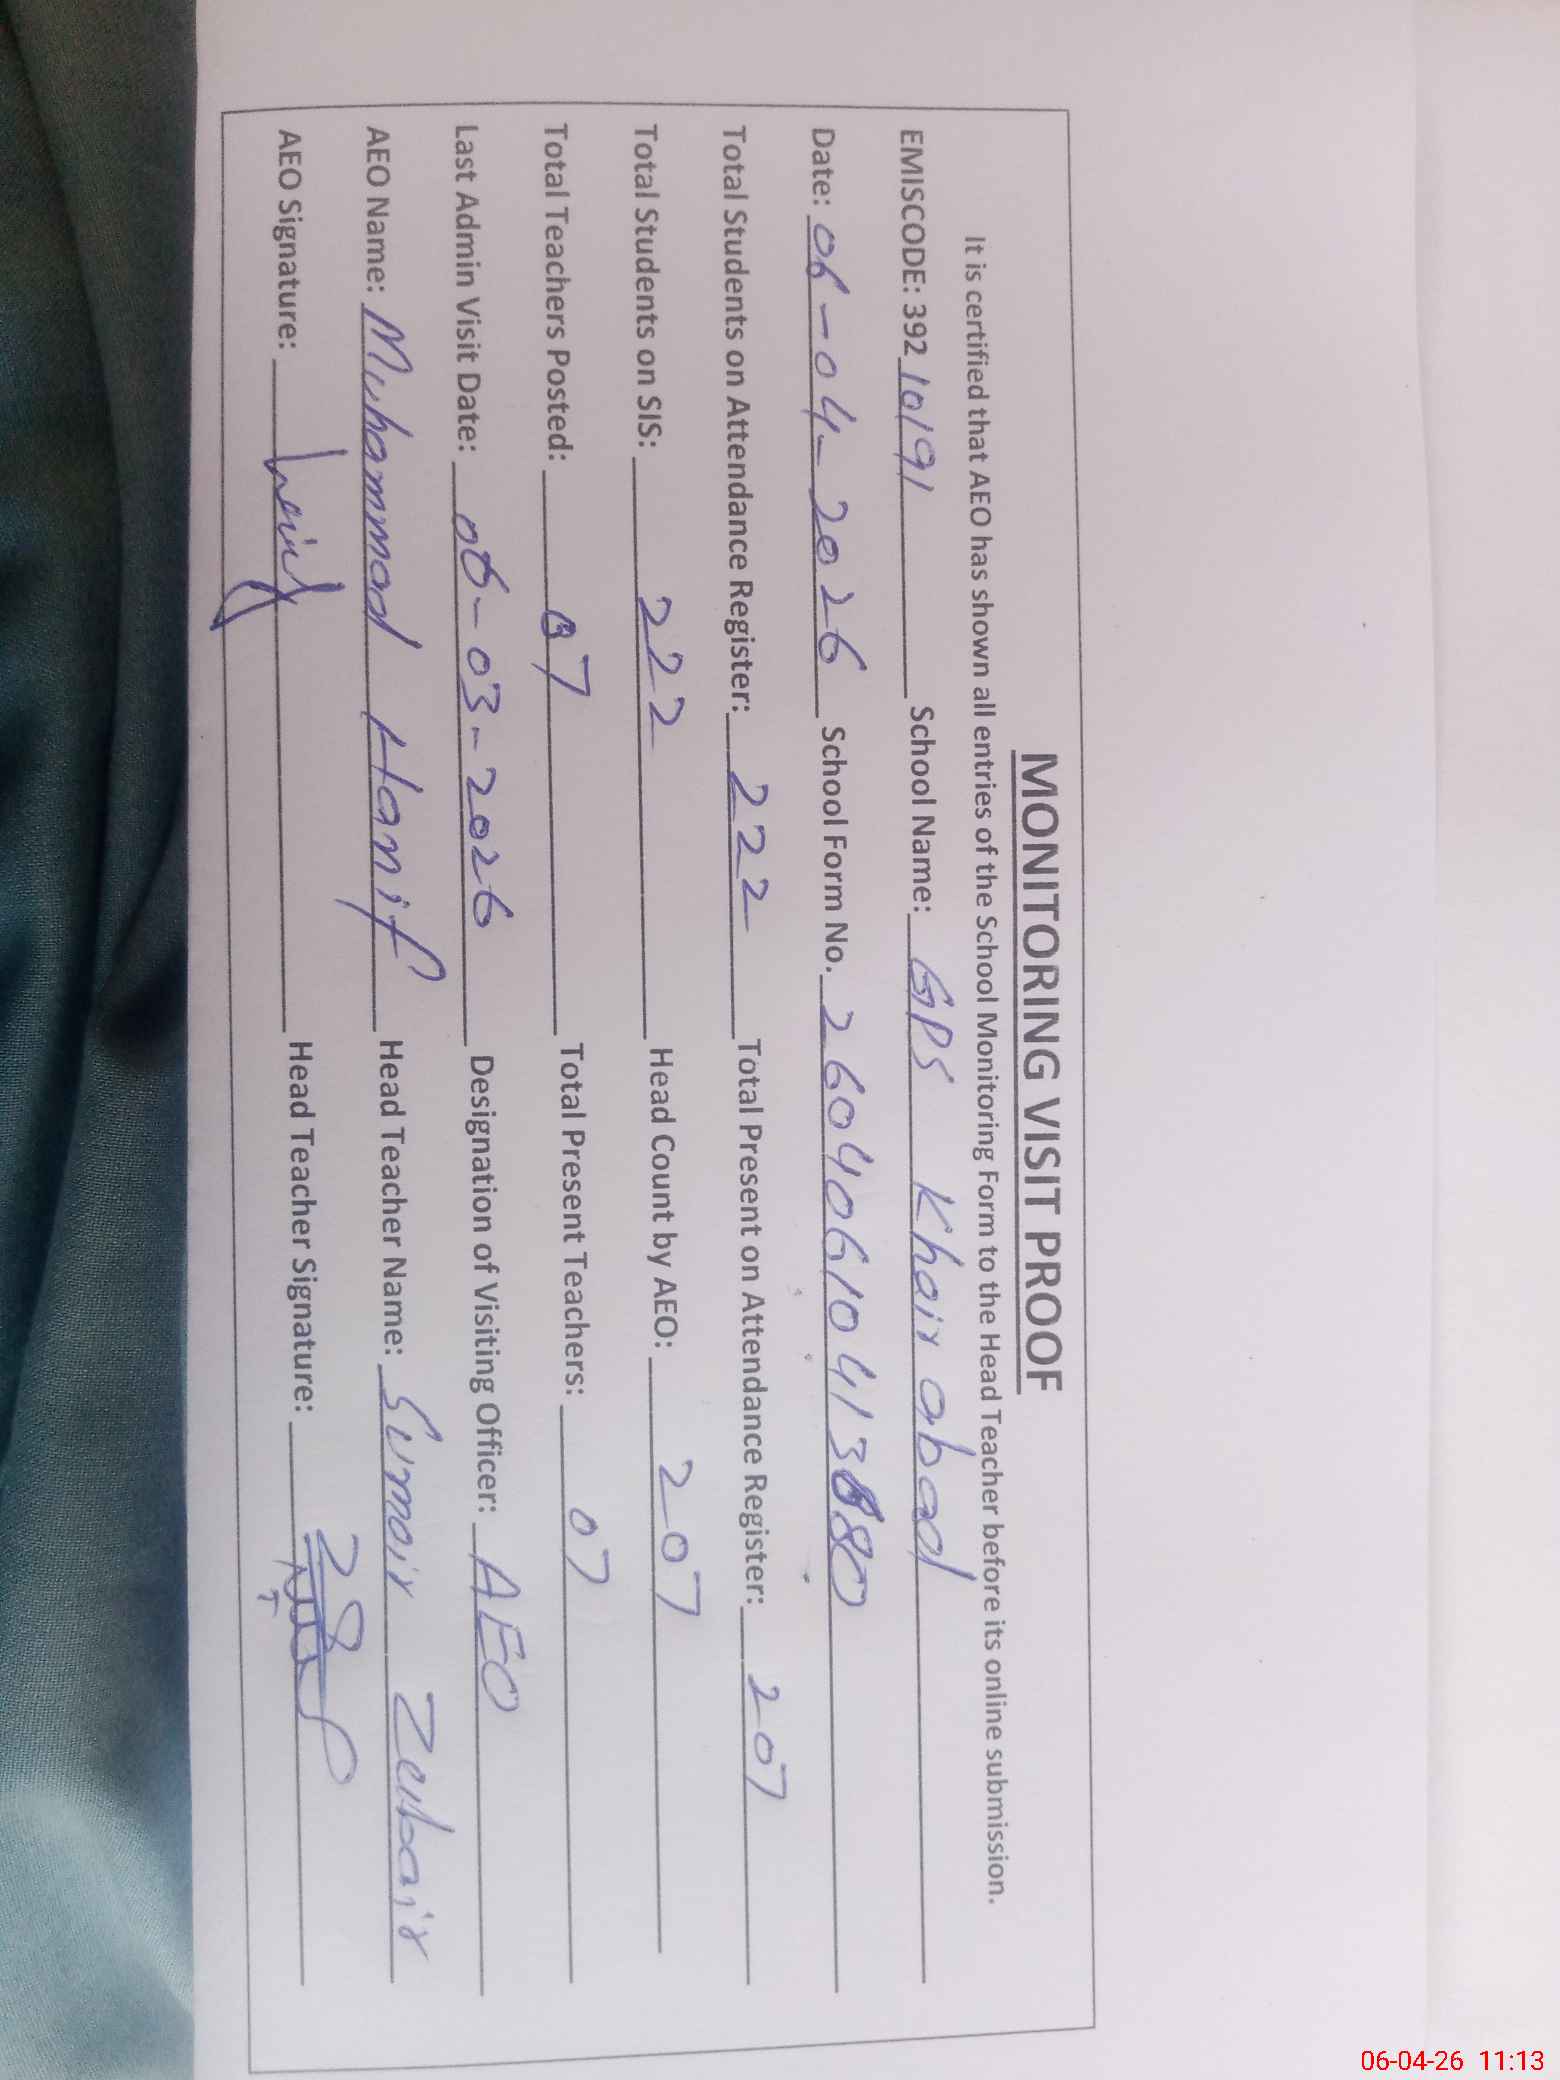 MONITORING VISIT PROOF
It is certified that AEO has shown all entries of the School Monitoring Form to the Head Teacher before its online submission.
EMISCODE: 392 10191 School Name: GPS Khair abad
Date: 06-04-2026 School Form No. 26040610413880
Total Students on Attendance Register: 222 Total Present on Attendance Register: 207
Total Students on SIS: 222 Head Count by AEO: 207
Total Teachers Posted: 07 Total Present Teachers: 07
Last Admin Visit Date: 06-03-2026 Designation of Visiting Officer: AEO
AEO Name: Muhammad Hanif Head Teacher Name: Sumair Zubair
AEO Signature: Head Teacher Signature:
06-04-26 11:13